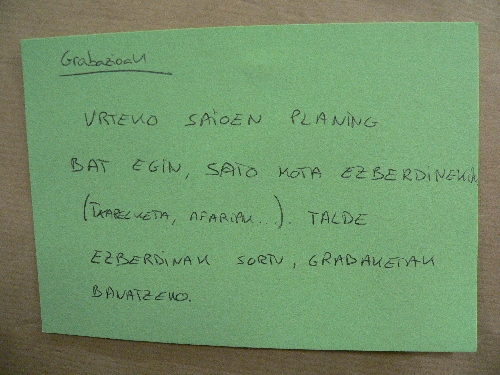 Grabazioak
URTEKO SAIOEN PLANING
BAT EGIN, SAIO MOTA EZBERDINEKIN
(TXAPELKETA, AFARIAK..). TALDE
EZBERDINAK SORTU, GRABAKETAK
BANATZEKO.